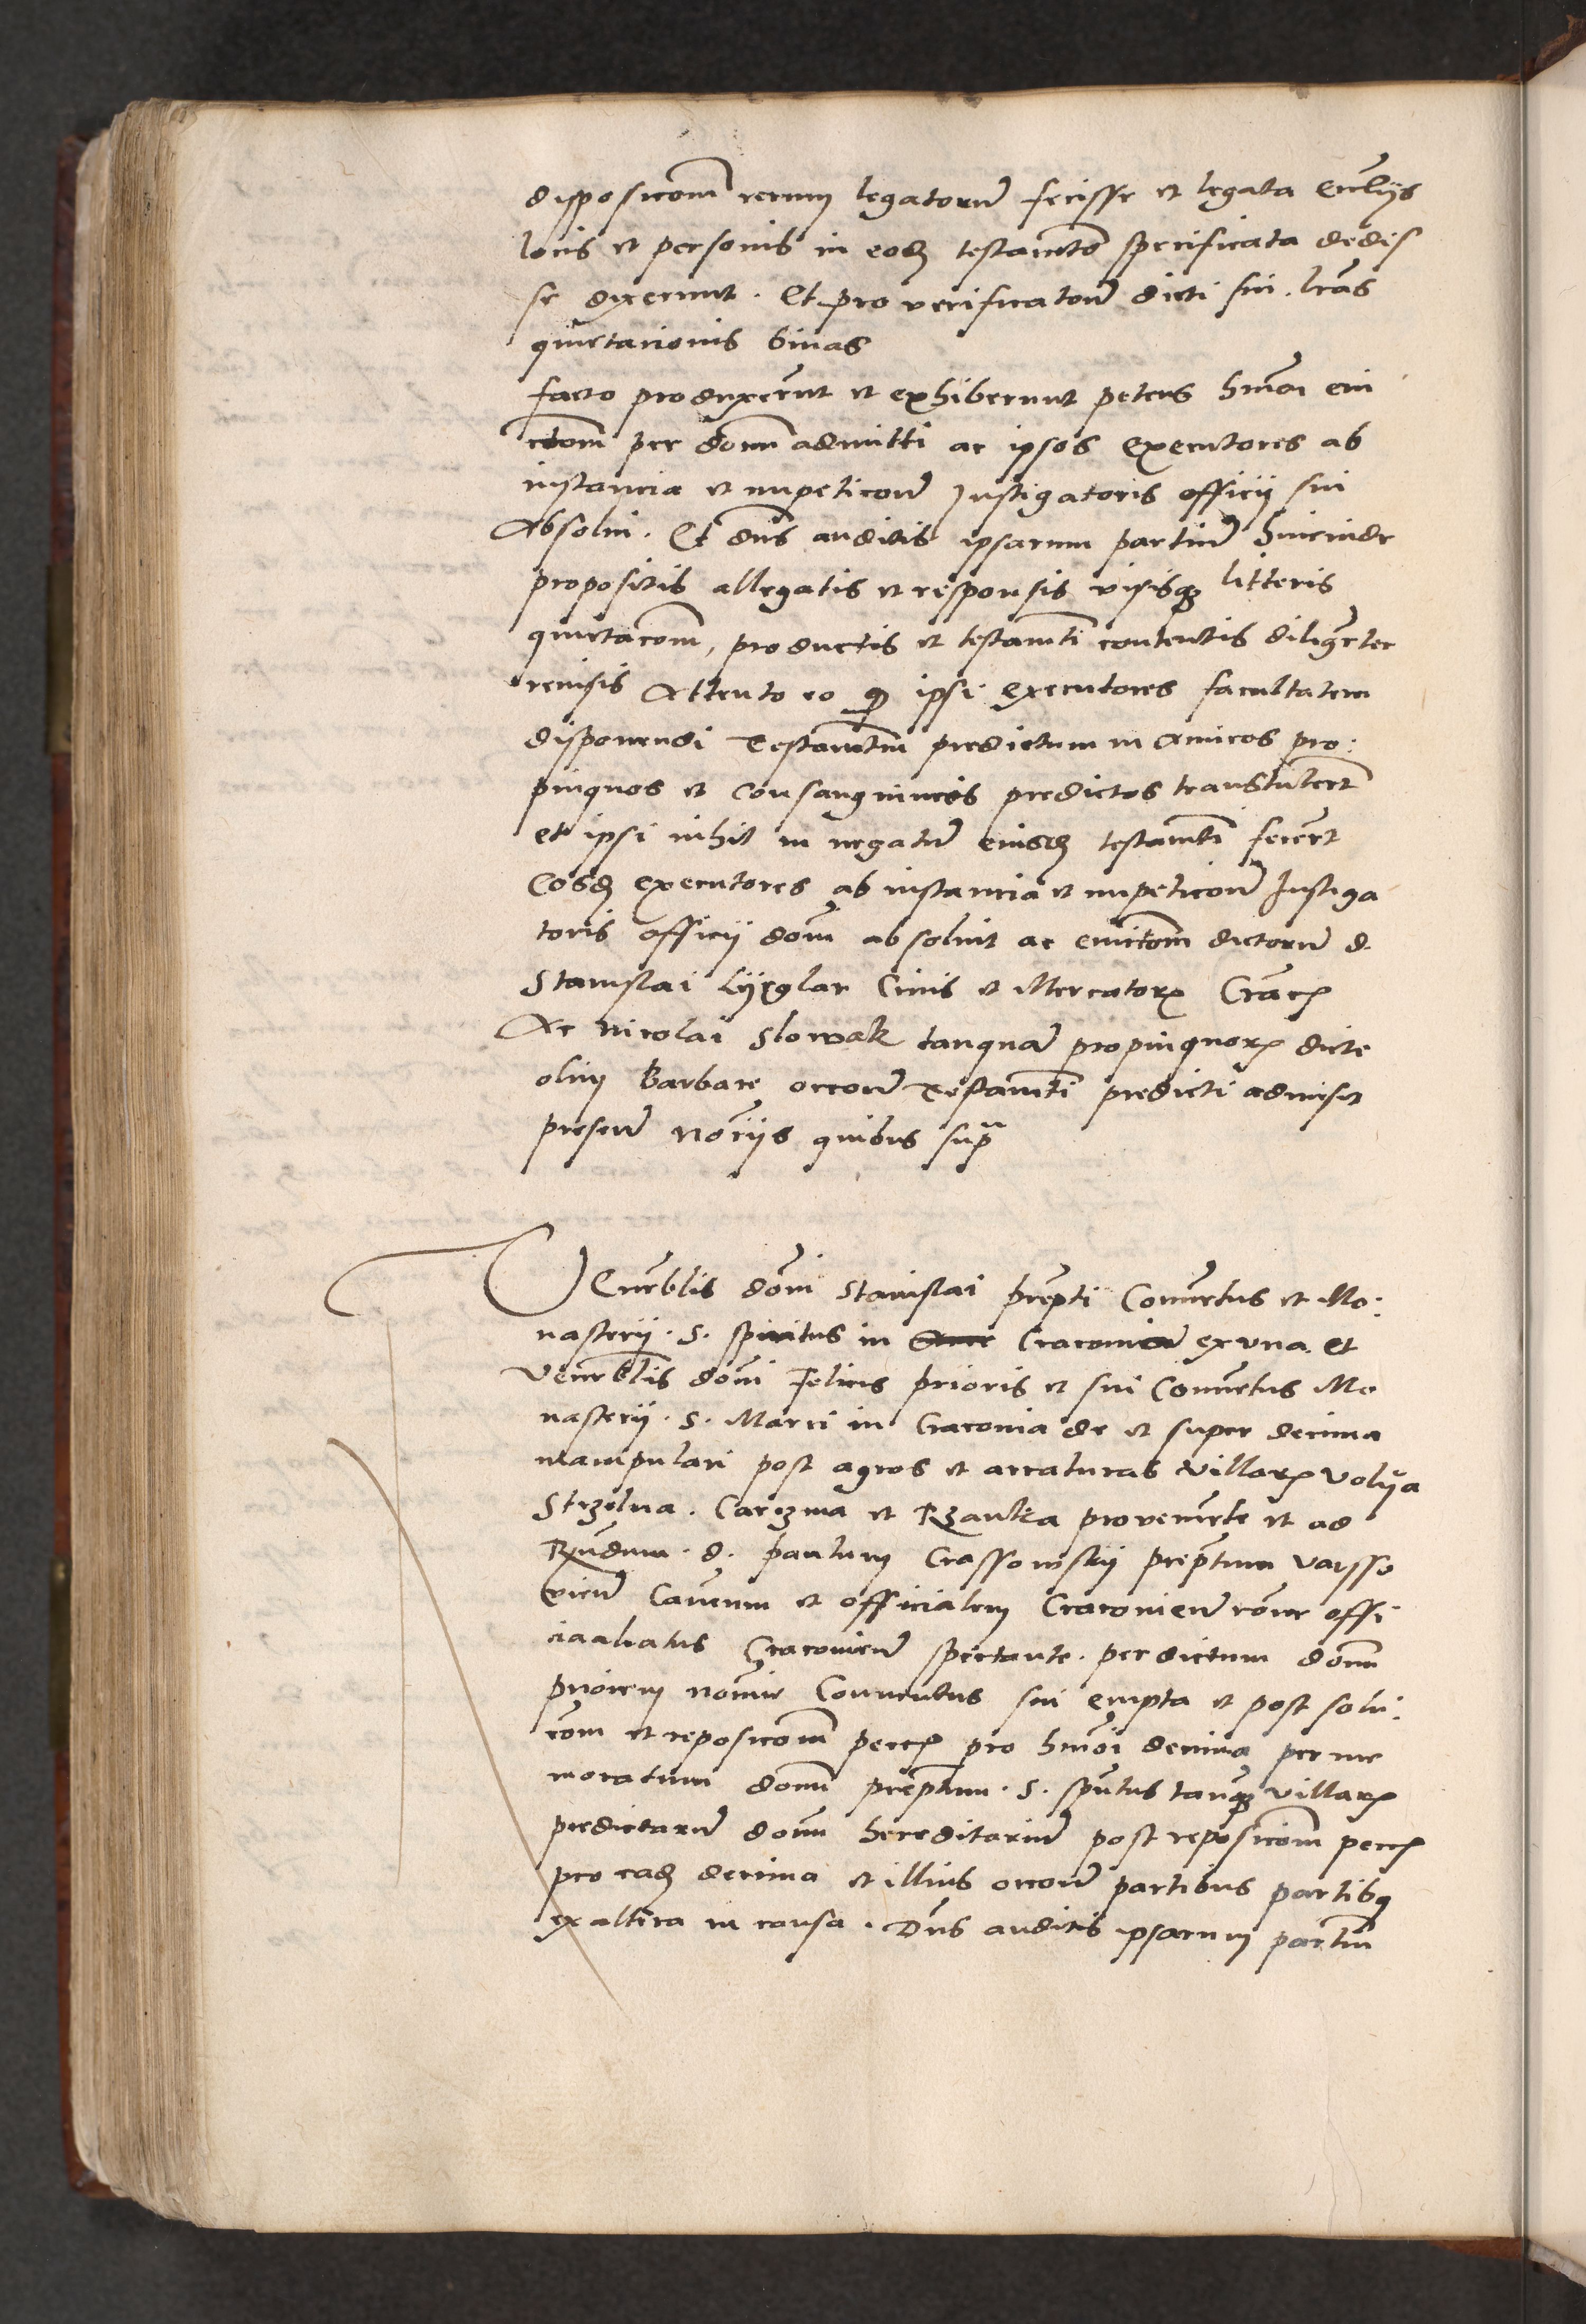 disposicom̄ rerum legatoru̅ fecisse et legata Eccl̄ijs
locis et personis in eod(em) testam̄to specificata dedis
se dixerunt . Et pro verificatou̅ dicti sui . lr̄as
quietacionis binas
facto produxer̄ut et exhiberunt petens hm̄oi eui
ctom̄ per dom̄ admitti ac ipsos executores ab
instancia et impeticou̅ Instigatoris officij sui
Absolui . Et dn̄s auditis ipsarum partiu̅ hincinde
propositis allegatis et responsis visisq(ue) litteris
quietacom̄, productis et testam̄ti contentis dilige̅ter
reuisis Attento eo q(uod) ipsi executores facultatem
disponendi Testam̄tum predictum in Amicos pro:
pinquos et Consanguineos predictos transtuler̄t
et ipsi nihil in negatu̅ eiusd(em) testam̄ti fecer̄t
Eosd(em) executores ab instancia et impeticou̅ Instiga
toris officij dom̄ absoluit ac euictom̄ dictoru̅ d.
Stanislai Lijxglar Ciuis et Mercator(um) Crac(ouiensis)
Ac Nicolai Slowak tanqua̅ propinquor(um) dicte
olim Barbare occou̅ Testam̄ti predicti admisit
presen̅ No̅rijs quibus supr̄a
Ven̄erblis dom̄i Stanislai prep̄ti Conue̅tus et Mo:
nasterij . S . spiritus in Cracouia ex vna . Et
Vener̄blis dom̄i Felicis prioris et sui Conue̅tus Mo
nasterij . S . Marci in Cracouia de et super decima
manipulari post agros et arraturas villar(um) Volija
Strzelna . Carczma et Rzantka prouenie̅te et ad
Rn̄dum . d . paulum Crassowskij prep̄tum Varsso
vien̅ Can̄cum et officialem Cracouien̅ ro̅ne offi
ciaaliatus Cracouien̅ spectante . per dictum dom̄
priorem nom̄ie Conuentus sui empta et post solu:
com̄ et reposicom̄ pecc(unie) pro hm̄oi decima per me
moratum dom̄ prep̄tum . S . spu̅tus tanq(uam) villar(um)
predictaru̅ dom̄ hereditariu̅ post reposicom̄ pecc(unie)
pro ead(em) decima et illius occou̅ partibus partibq(ue)
ex altera in causa . Dn̄s auditis ipsarum partiu̅